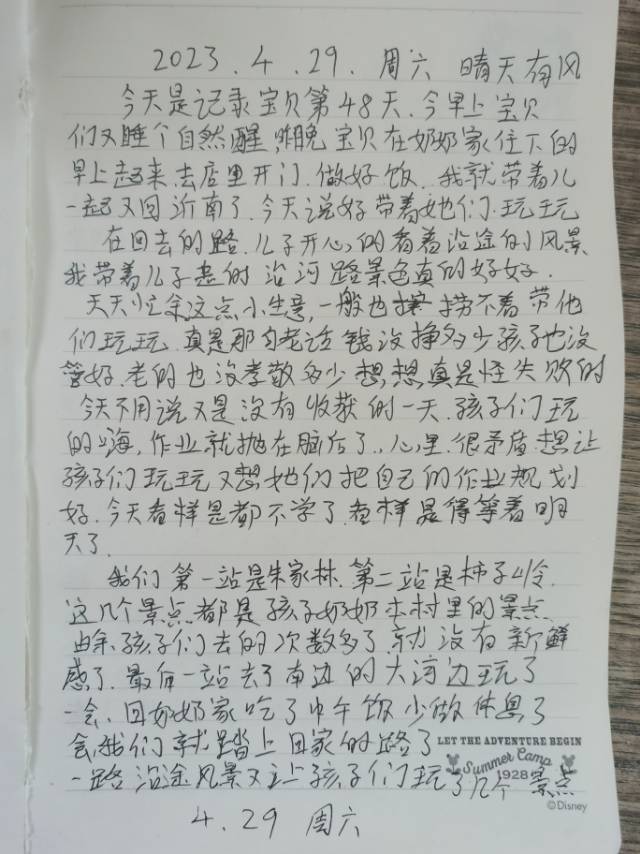 2023.4.29.周六 晴天有风
今天是记录宝贝第48天.今早上宝贝
们又睡个自然醒,昨晚宝贝在奶奶家住下的
早上起来去店里开门.做好饭.我就带着儿
一起又回沂南了.今天说好带着她们玩玩
在回去的路.儿子开心的看着沿途的风景
我带着儿子走的沿河路景色真的好好.
天天忙余这点小生意,一般也捞不着带他
们玩玩.真是那句老话钱没挣多少孩子也没
管好.老的也没孝敬多少想想真是怪失败的
今天不用说又是没有收获的一天.孩子们玩
的嗨,作业就抛在脑后了.,心里很矛盾.想让
孩子们玩玩又想她们把自己的作业规划
好.今天看样是都不学了.看样是得等着明
天了.
我们第一站是朱家林.第二站是柿子岭
这几个景点都是孩子奶奶本村里的景点
由余孩子们去的次数多了.就没有新鲜
感了.最后一站去了南边的大河边玩了
一会.回奶奶家吃了中午饭少做休息了
会我们就踏上回家的路了
一路沿途风景又让孩子们玩了几个景点
LET THE ADVENTURE BEGIN
Summer Camp
1928
©Disney
4.29 周六